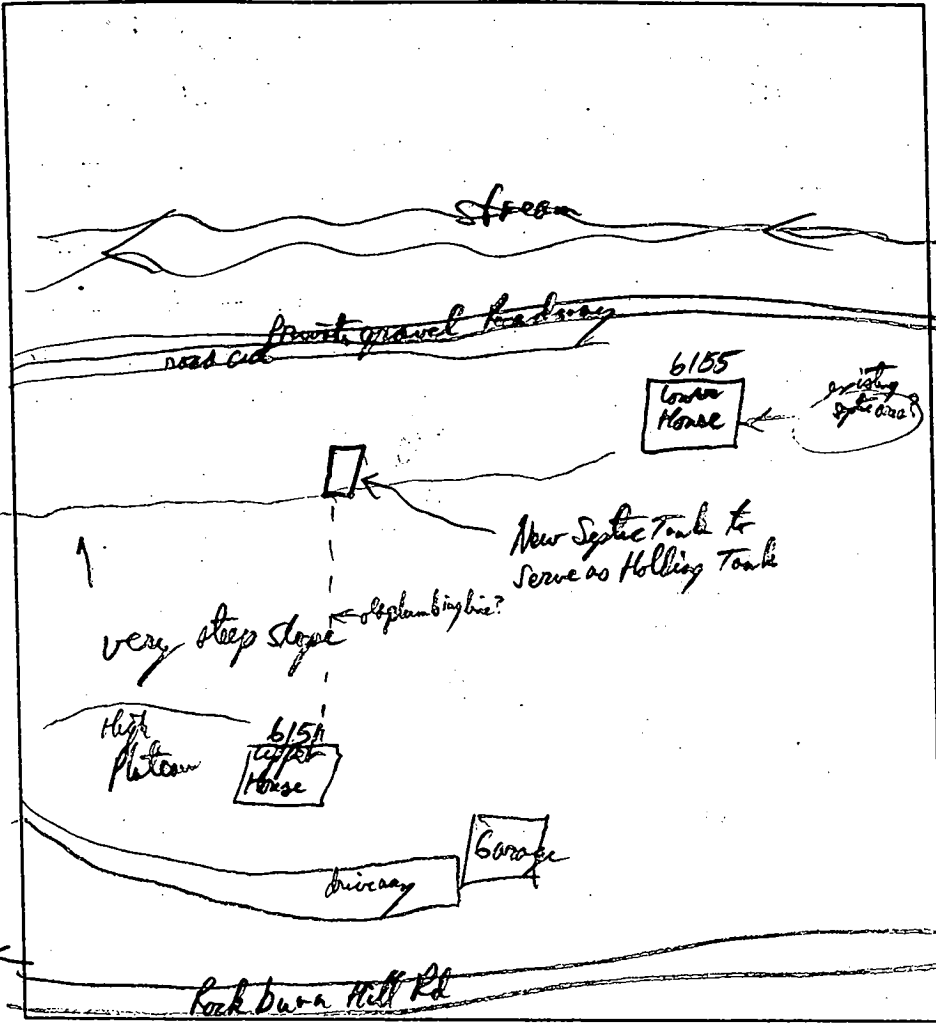 stream
Private gravel Roadway
road cut
6155
Lower
House
existing
septic area?
New Septic Tank to
Serve as Holding Tank
old plumbing line?
very steep slope
High
Plateau
6151
upper
House
Garage
driveway
Rock Burn Hill Rd